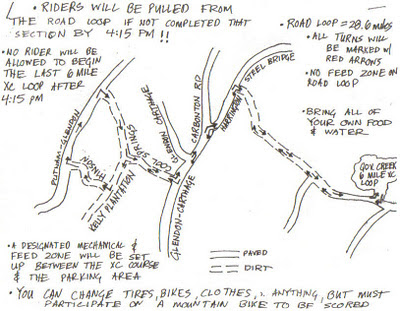 • RIDERS WILL BE PULLED FROM
THE ROAD LOOP IF NOT COMPLETED THAT
SECTION BY 4:15 PM !!
• NO RIDER WILL BE
ALLOWED TO BEGIN
THE LAST 6 MILE
XC LOOP AFTER
4:15 PM
• ROAD LOOP = 28.6 miles
• ALL TURNS WILL
BE MARKED W/
RED ARROWS
• NO FEED ZONE ON
ROAD LOOP
• BRING ALL OF
YOUR OWN FOOD
& WATER
STEEL BRIDGE
CARBONTON RD
GLENDON CARTHAGE
SPRINGS
PUTNAM-GLENDON
KELLY PLANTATION
GLENDON-CARTHAGE
CREEK
6 MILE XC
LOOP
PAVED
DIRT
• A DESIGNATED MECHANICAL &
FEED ZONE WILL BE SET
UP BETWEEN THE XC COURSE
& THE PARKING AREA
• YOU CAN CHANGE TIRES, BIKES, CLOTHES, ANYTHING, BUT MUST
PARTICIPATE ON A MOUNTAIN BIKE TO BE SCORED